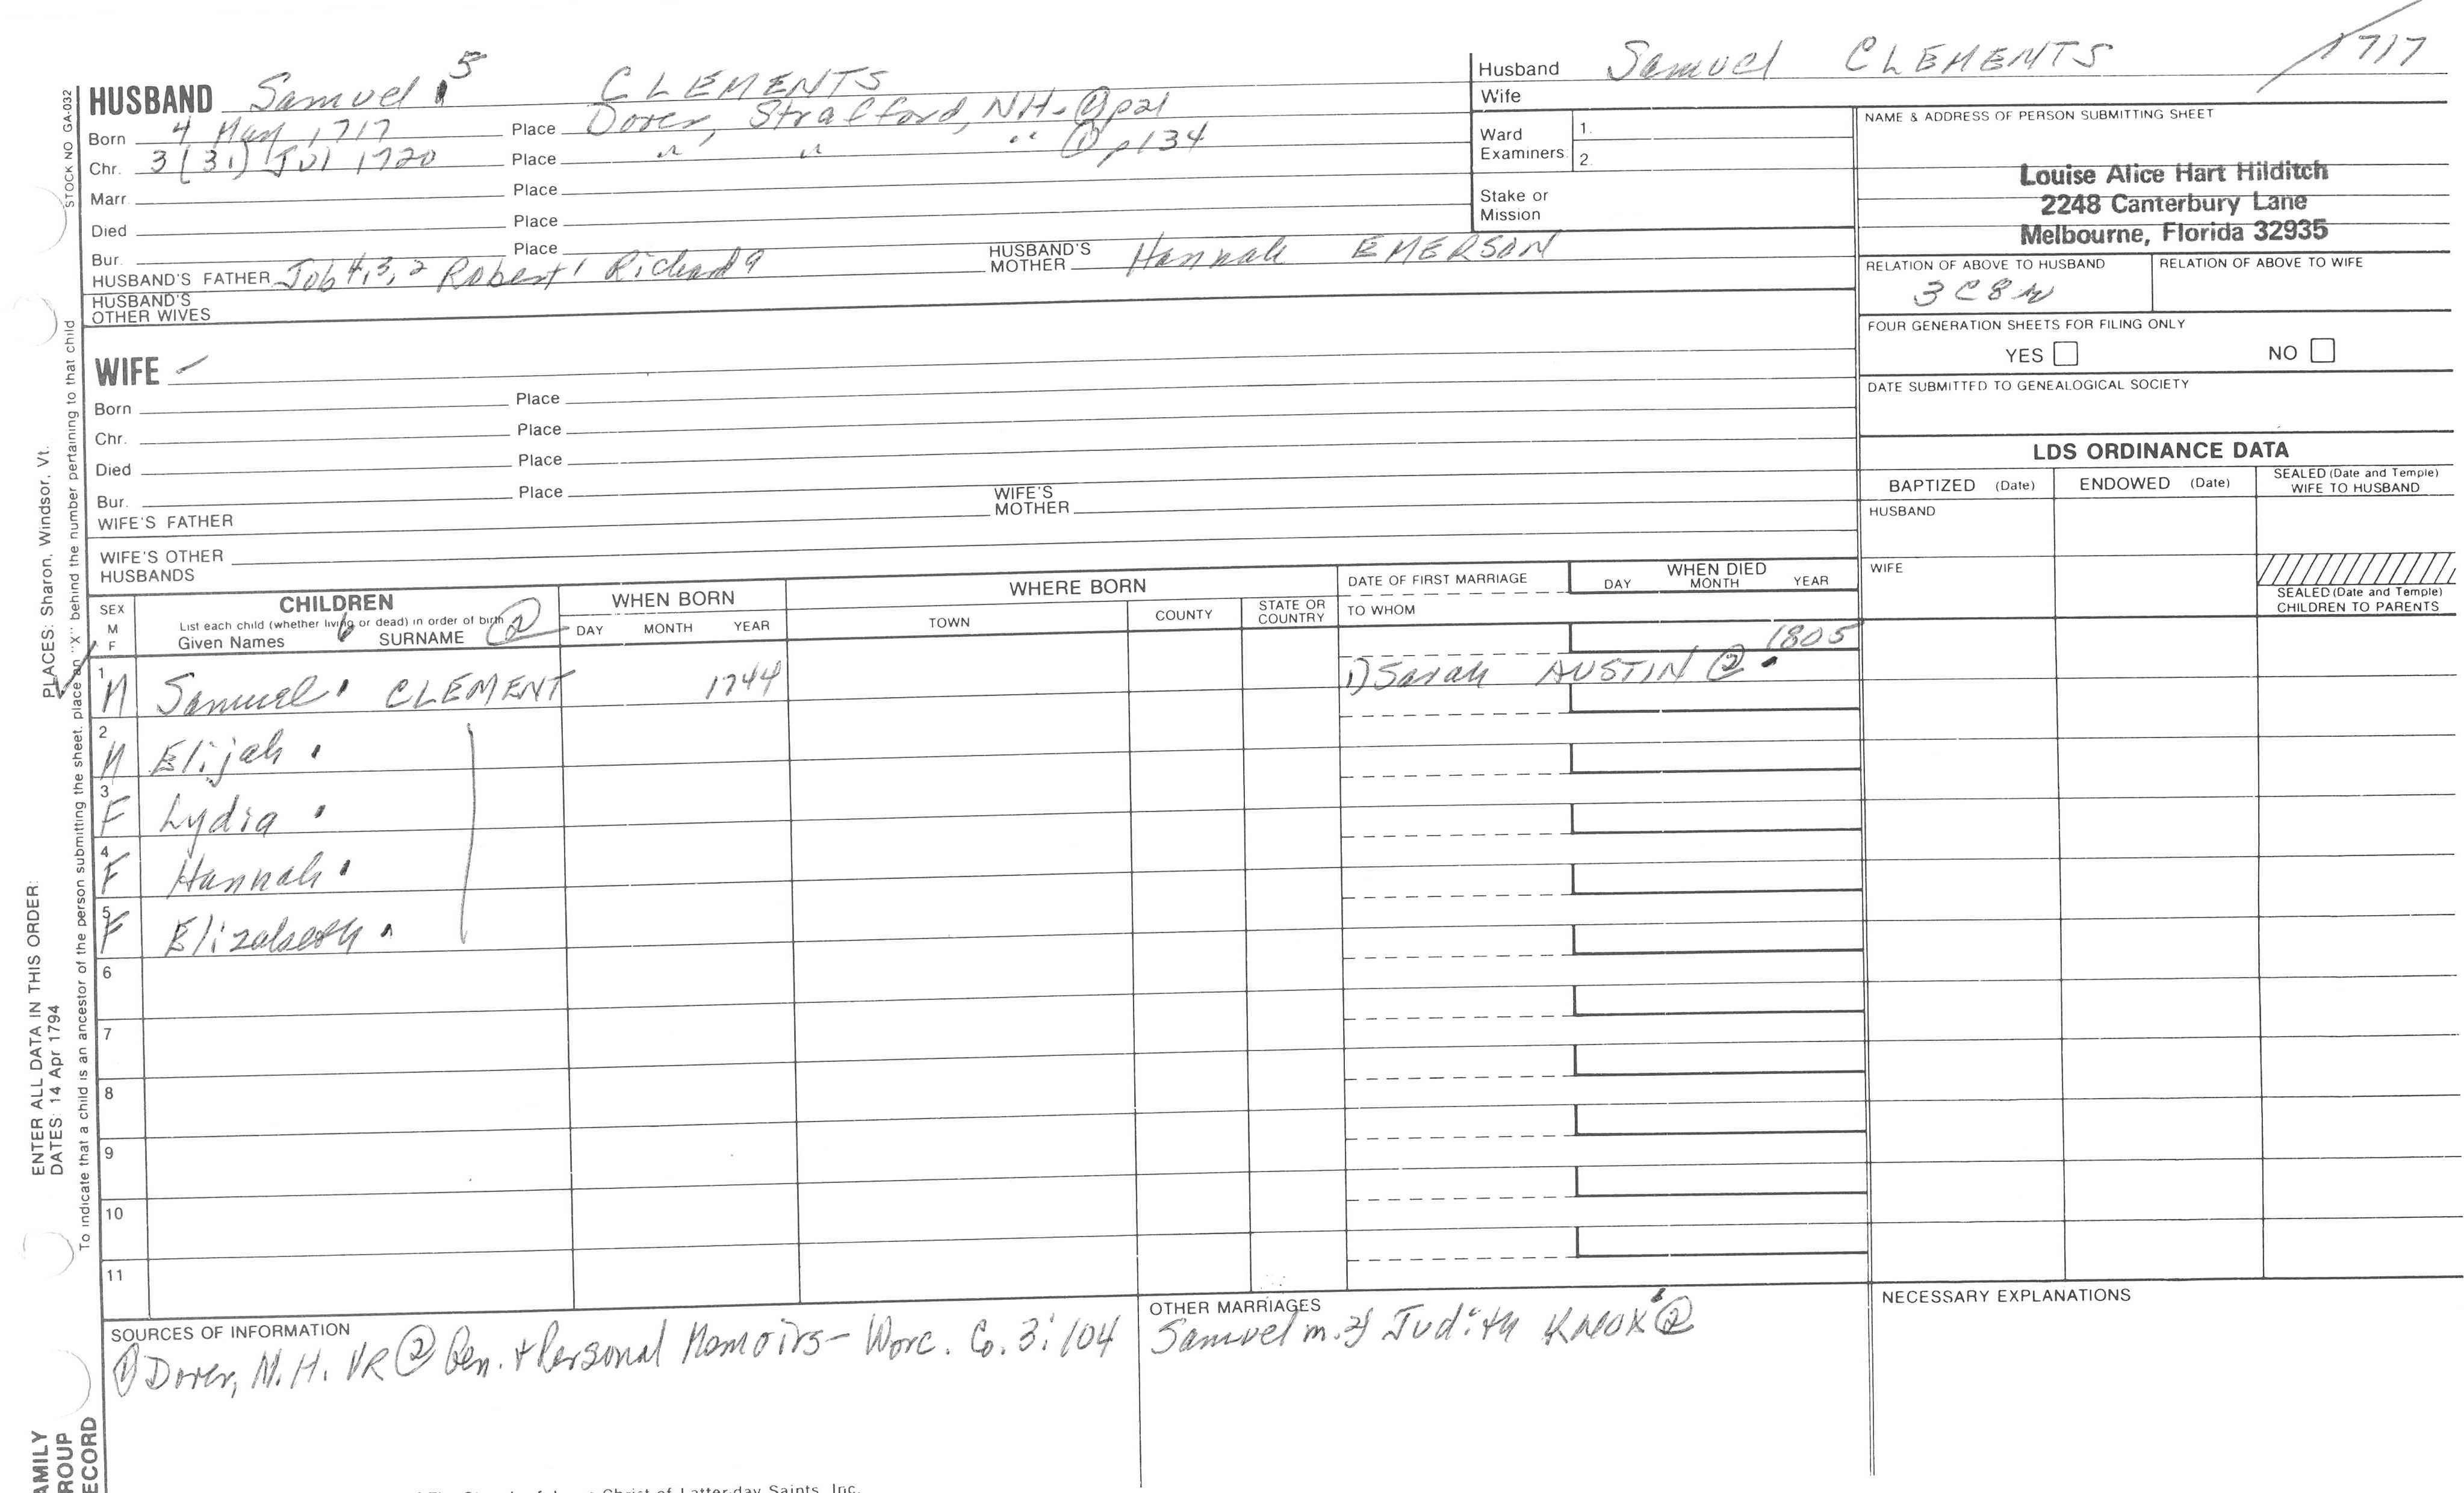 HUSBAND Samuel 5 CLEMENTS
Born 4 May 1717 Place Dover, Strafford, NH - ① p21
Chr. 3 (31) Jul 1720 Place " " " ① p134
Marr. Place
Died Place
Bur. Place
HUSBAND'S FATHER Job 4, 3, 2 Robert 1 Richard a HUSBAND'S MOTHER Hannah EMERSON
HUSBAND'S OTHER WIVES
WIFE
Born Place
Chr. Place
Died Place
Bur. Place
WIFE'S FATHER WIFE'S MOTHER
WIFE'S OTHER HUSBANDS
Husband Samuel CLEMENTS 1717
Wife
Ward Examiners: 1.
2.
Stake or Mission
NAME & ADDRESS OF PERSON SUBMITTING SHEET
Louise Alice Hart Hilditch
2248 Canterbury Lane
Melbourne, Florida 32935
RELATION OF ABOVE TO HUSBAND RELATION OF ABOVE TO WIFE
3C8R
FOUR GENERATION SHEETS FOR FILING ONLY
YES NO
DATE SUBMITTED TO GENEALOGICAL SOCIETY
LDS ORDINANCE DATA
BAPTIZED (Date) ENDOWED (Date) SEALED (Date and Temple) WIFE TO HUSBAND
HUSBAND
WIFE
SEALED (Date and Temple) CHILDREN TO PARENTS
SEX M F CHILDREN WHEN BORN WHERE BORN DATE OF FIRST MARRIAGE WHEN DIED
List each child (whether living or dead) in order of birth
Given Names 6 SURNAME ② DAY MONTH YEAR TOWN COUNTY STATE OR COUNTRY TO WHOM DAY MONTH YEAR
1 M Samuel CLEMENT 1744 1) Sarah AUSTIN ② 1805
2 M Elijah
3 F Lydia
4 F Hannah
5 F Elizabeth
6
7
8
9
10
11
SOURCES OF INFORMATION
① Dover, N.H. VR ② Gen. + Personal Memoirs - Worc. Co. 3:104
OTHER MARRIAGES
Samuel m. 2) Judith KNOX ②
NECESSARY EXPLANATIONS
STOCK NO GA-032
PLACES: Sharon, Windsor, Vt.
To indicate that a child is an ancestor of the person submitting the sheet, place an "X" behind the number pertaining to that child
ENTER ALL DATA IN THIS ORDER:
DATES: 14 Apr 1794
AMILY
ROUP
ECORD
Christ of Latter-day Saints, Inc.